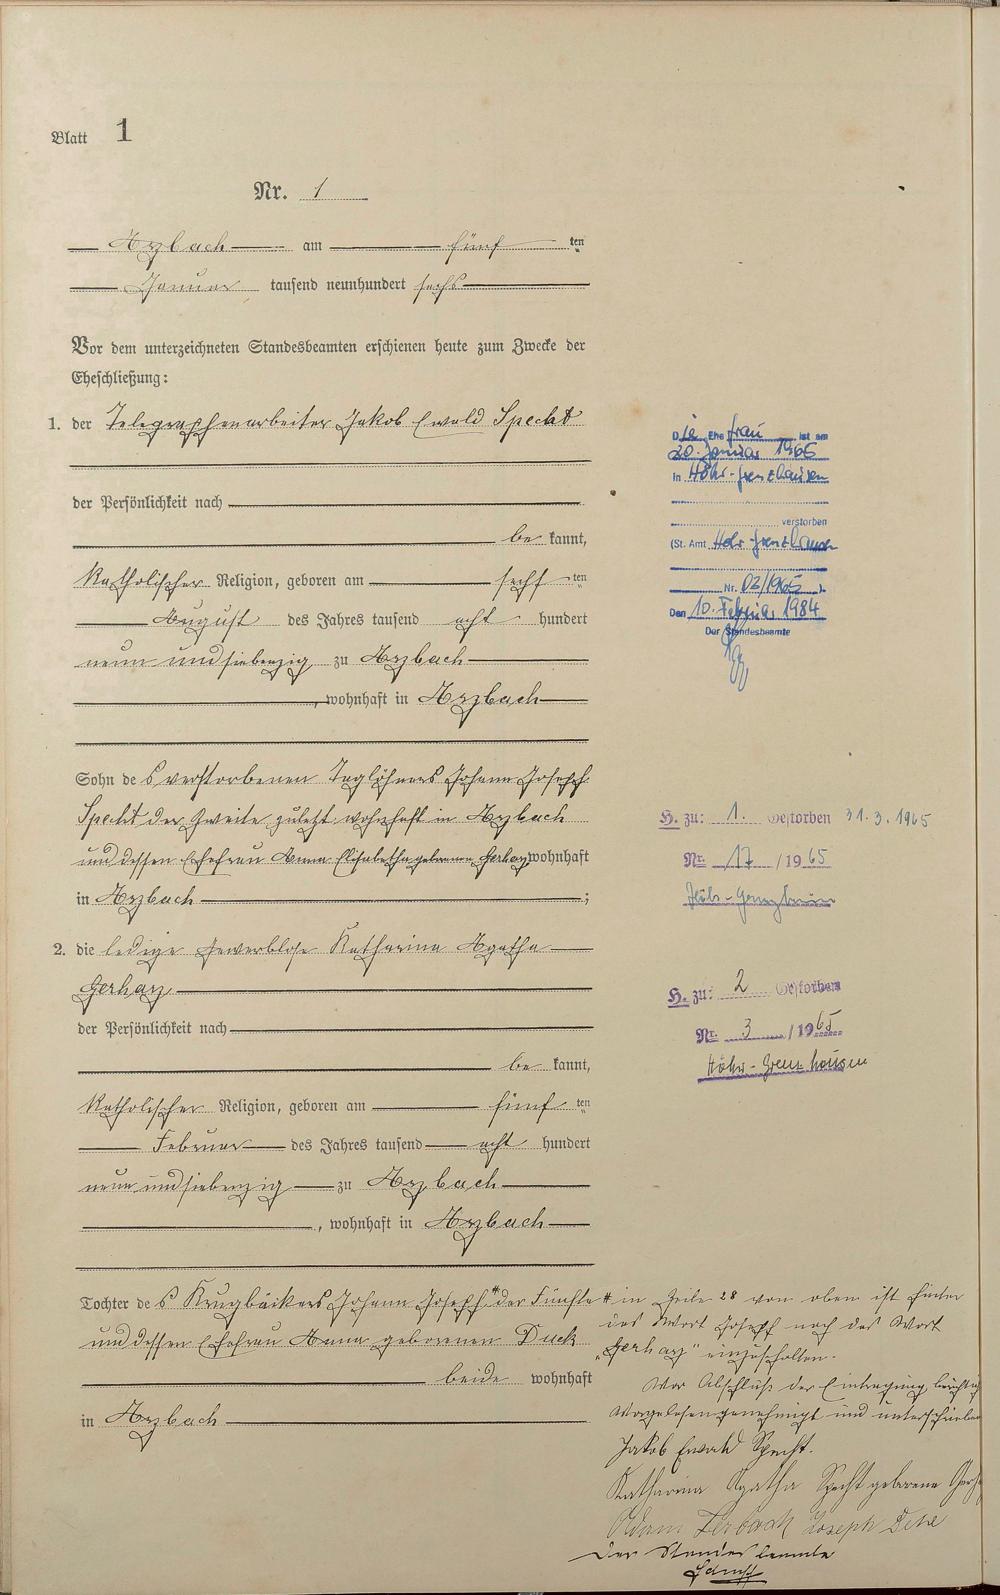 Blatt 1
Nr. 1
Arzbach am fünf ten
Januar tausend neunhundert sechs
Vor dem unterzeichneten Standesbeamten erschienen heute zum Zwecke der
Eheschließung:
1. der Telegraphenarbeiter Jakob Ewald Specht
der Persönlichkeit nach
be kannt,
Katholischer Religion, geboren am sechs ten
August des Jahres tausend acht hundert
neun und siebenzig zu Arzbach
, wohnhaft in Arzbach
Sohn des verstorbenen Taglöhners Johann Joseph
Specht der Zweite zuletzt wohnhaft in Arzbach
und dessen Ehefrau Anna Elisabetha geborenen Gerharz wohnhaft
in Arzbach ;
2. die ledige gewerblose Katharina Agatha
Gerharz
der Persönlichkeit nach
be kannt,
Katholischer Religion, geboren am fünf ten
Februar des Jahres tausend acht hundert
neun und siebenzig zu Arzbach
, wohnhaft in Arzbach
Tochter des Krugbäckers Johann Joseph # der Fünfte
und dessen Ehefrau Anna geborenen Duck
beide wohnhaft
in Arzbach
Die Ehefrau ist am
20. Januar 1965
in Höhr-Grenzhausen
verstorben
(St. Amt Höhr-Grenzhausen
Nr. 03/1965 ).
Den 10. Februar 1984
Der Standesbeamte
H. zu: 1. Gestorben 31.3.1965
Nr. 17 /1965
Höhr-Grenzhausen
H. zu: 2 Gestorben
Nr. 3 /1965
Höhr-Grenzhausen
# in Zeile 28 von oben ist hinter
das Wort Joseph noch das Wort
"Gerharz" einzuschalten.
Vor Abschluß der Eintragung
Vorgelesen genehmigt und unterschrieben
Jakob Ewald Specht.
Katharina Agatha Specht geborene
Adam Joseph
Der Standesbeamte